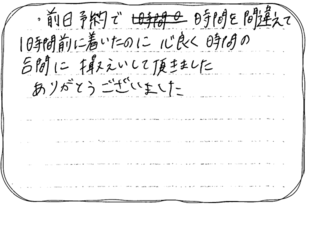 ・前日予約で 時間を間違えて
1時間前に着いたのに 心良く 時間の
合間に 揃えいして頂きました
ありがとうございました